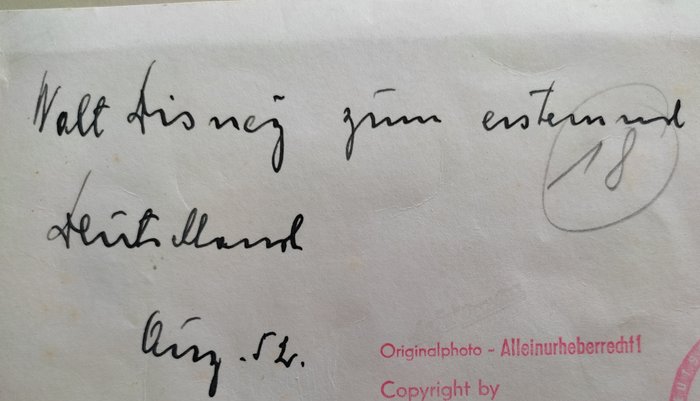 Walt Disney zum erstenmal
18
Deutschland
Aug. 52.
Originalphoto - Alleinurheberrecht!
Copyright by